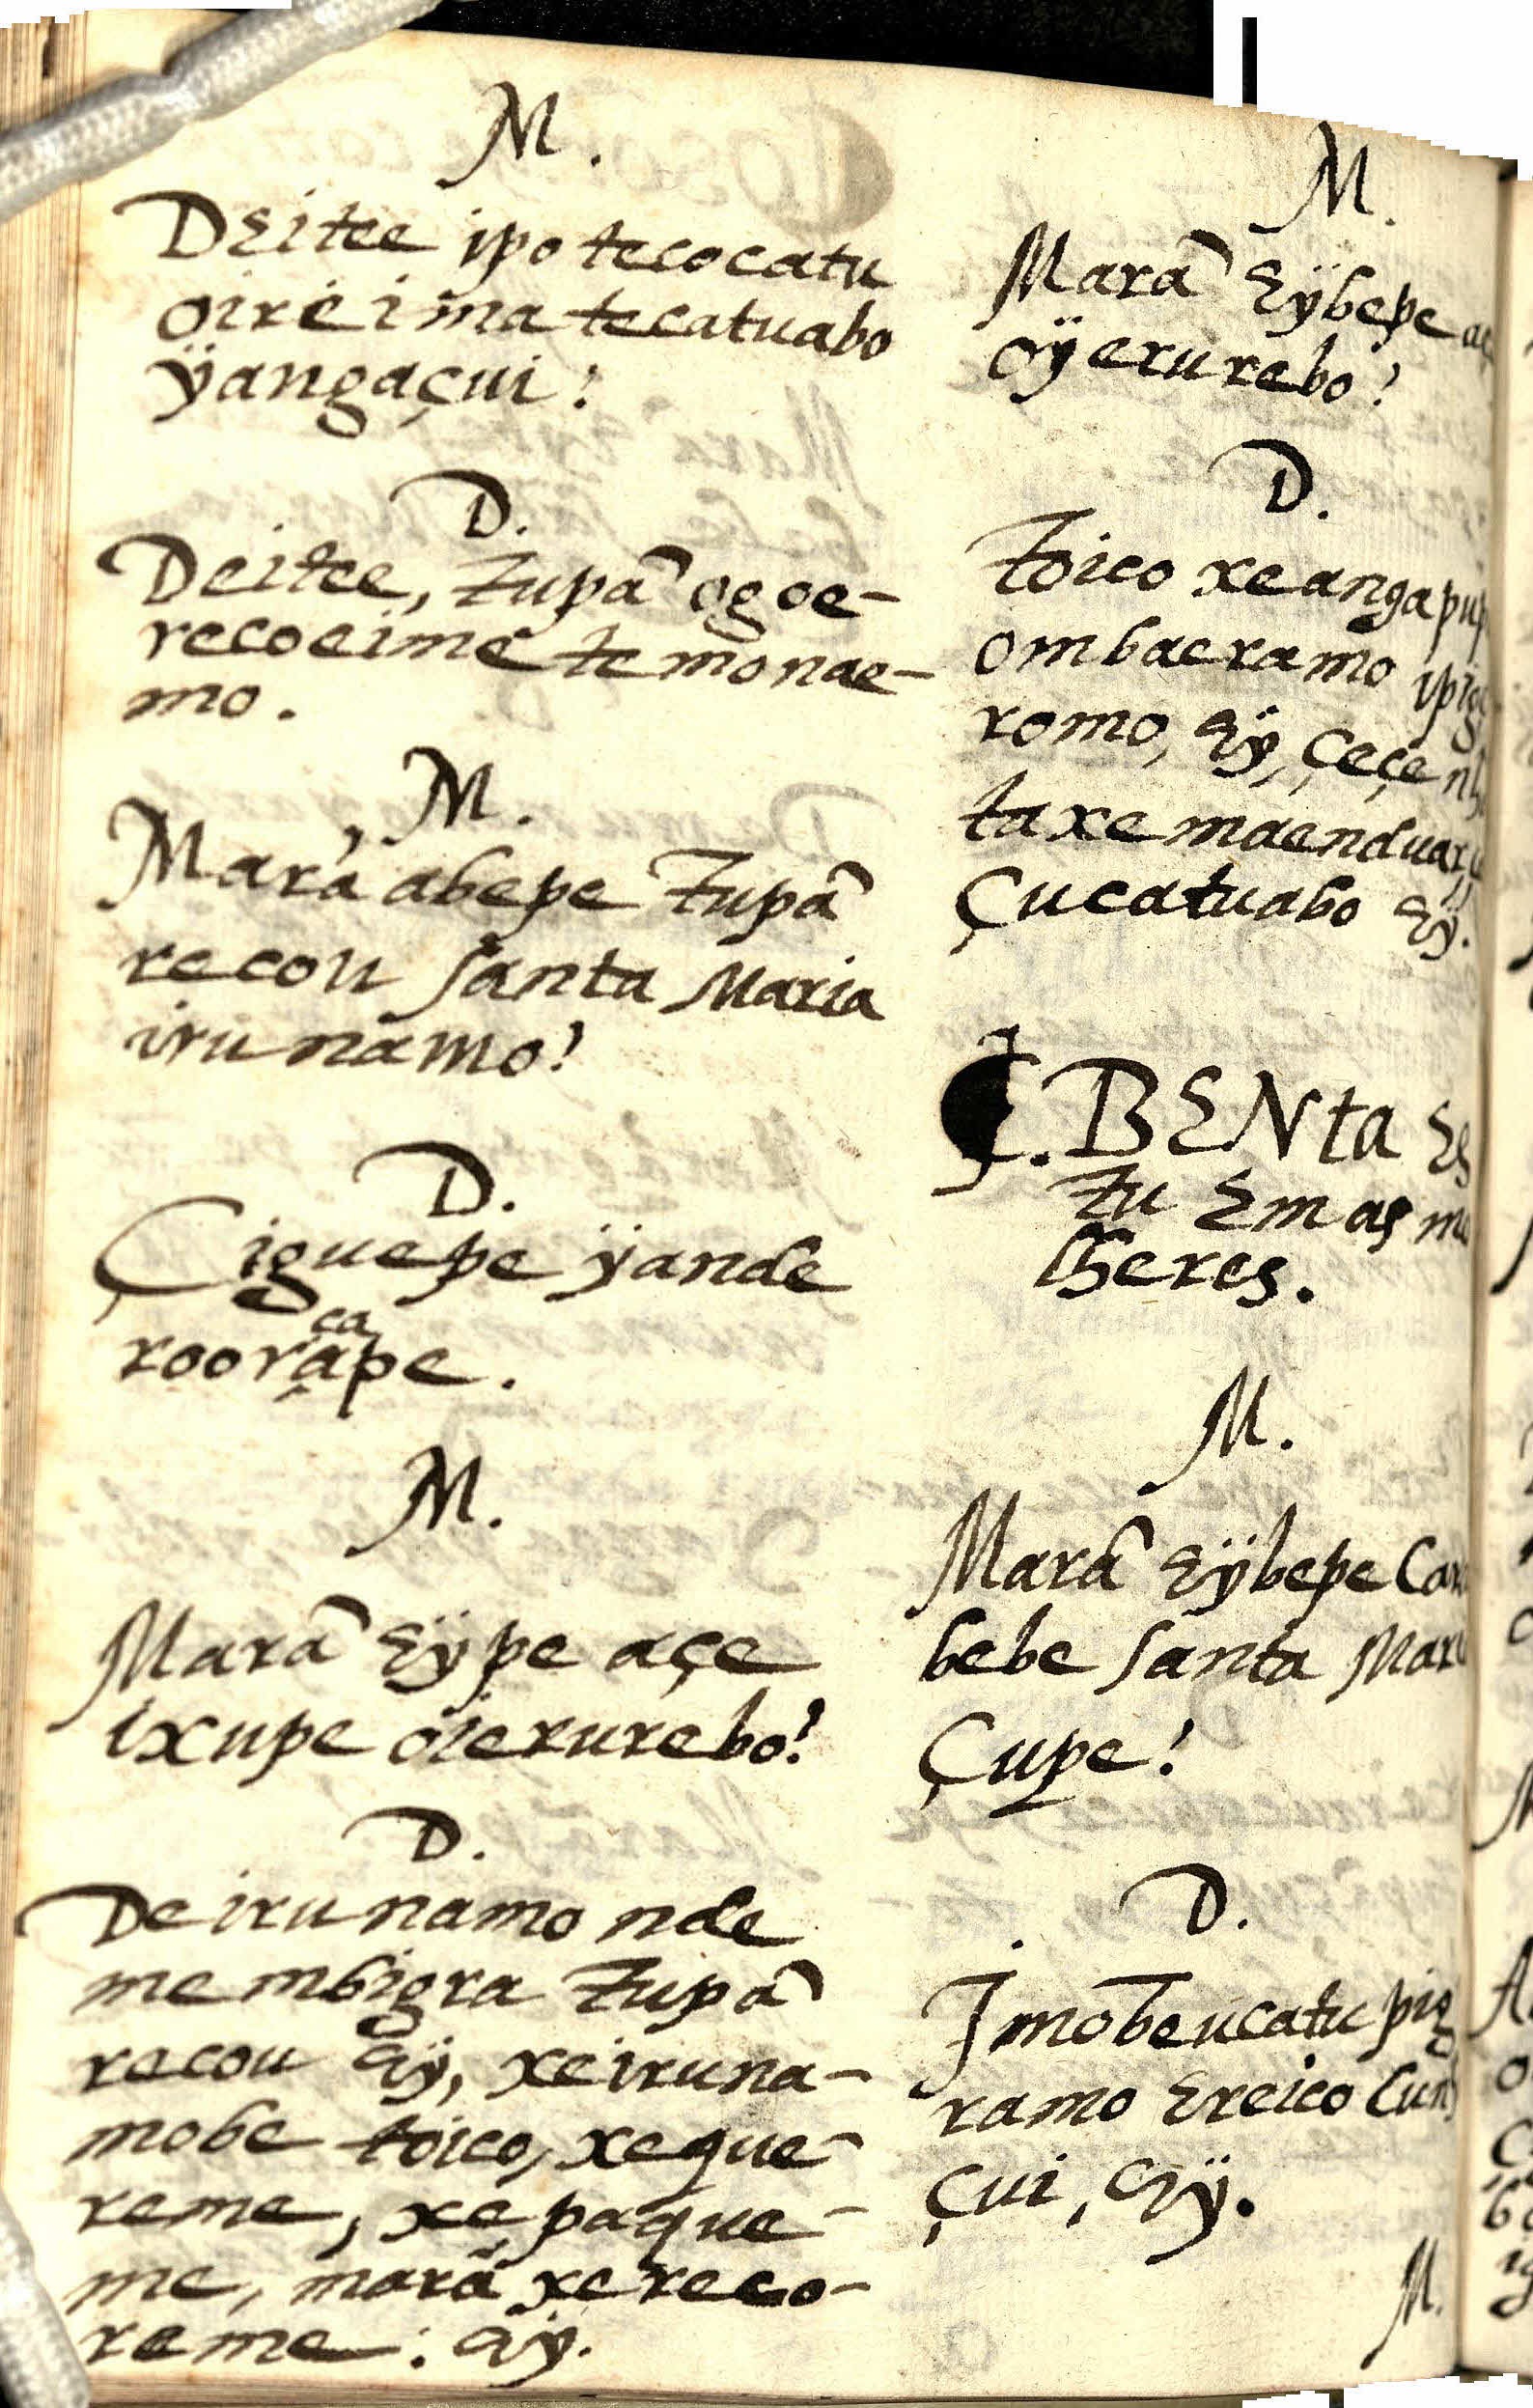 M.
DEitee ipo tecocatu
oire ima tecatuabo
ÿangaçui?
D.
Deitee, tupã ogoe-
recoeime temonae-
mo.
M.
Marã abepe tupã
recou santa Maria
irunamo?
D.
Çiguepe ÿande
roo rape.
ca
M.
Marã Eÿpe açe
ixupe oierurebo?
D.
De irunamo nde
membigra tupã
recou Eÿ, xeiruna-
mobe toico, xeque-
reme, xe paque-
me, marã xereco-
reme: Eÿ.
M.
Marã Eÿbepe
oÿerurebo?
D.
toico xe anga
ombaeramo
romo, Eÿ, çeçe
taxe maenduar
Çucatuabo Eÿ.
BENta
tu Em as
lheres.
M.
Marã Eÿbepe
bebe santa
Çupe?
D.
Imobeucatu
ramo Ereico
çui, Eÿ.
M.